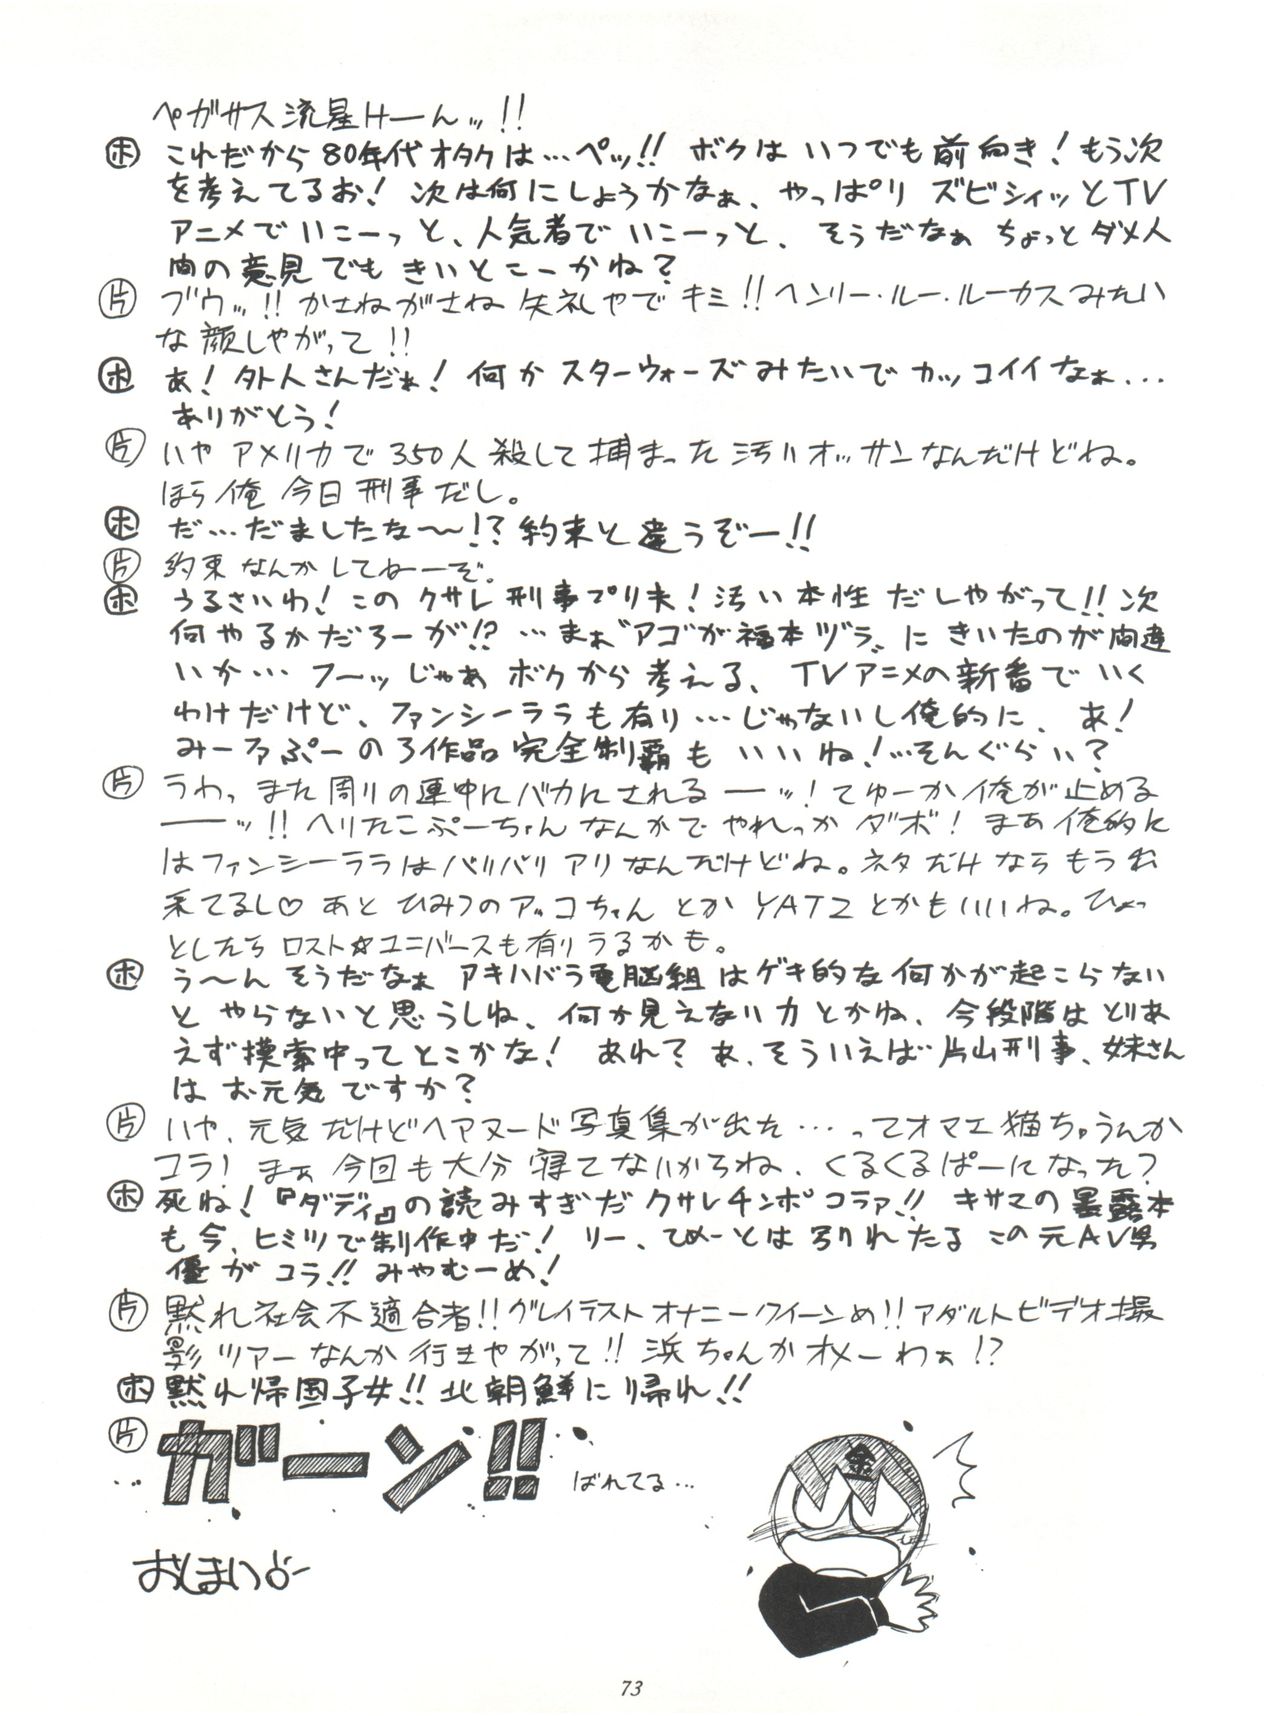 ペガサス流星けーんッ!!
ホ これだから80年代オタクは…ペッ!! ボクは いつでも前向き!もう次
を考えてるお! 次は何にしようかなぁ、やっぱり ズビシィッとTV
アニメでいこーっと、人気者でいこーっと、そうだなぁ ちょっとダメ人
間の意見でも きいとこーかね?
片 ブウッ!! かさねがさね 失礼やで キミ!! ヘンリー・ルー・ルーカスみたい
な顔しやがって!!
ホ あ! 外人さんだぁ! 何か スターウォーズみたいで カッコイイなぁ…
ありがとう!
片 いや アメリカで 350人 殺して 捕まった 汚いオッサンなんだけどね。
ほら俺 今日 刑事だし。
ホ だ…だましたな〜!? 約束と違うぞー!!
片 約束なんか してねーぞ。
ホ うるさいわ! この クサレ刑事プリ夫! 汚い本性 だしやがって!! 次
何やるかだろーが!? …まぁ〝アゴが福本ヅラ〟に きいたのが間違
いか… フーッじゃあ ボクから考える、 TVアニメの新番でいく
わけだけど、ファンシーララも有り…じゃないし俺的に、あ!
みーるぷーの3作品 完全制覇も いいね!…そんぐらい?
片 うわっ また周りの連中にバカにされる ーッ! てゆーか 俺が止める
ーーッ!! ヘリたこぷーちゃん なんかで やれっか ダボ! まあ 俺的に
はファンシーララはバリバリ アリなんだけどね。ネタだけならもう出
来てるし♡ あと ひみつのアッコちゃん とか YATZとかもいいね。ひょっ
としたら ロスト☆ユニバースも有りうるかも。
ホ う〜ん そうだなぁ アキハバラ電脳組はゲキ的な何かが起こらない
と やらないと思うしね、何か見えない力とかね、今段階はとりあ
えず模索中ってとこかな! あれ? あ、そういえば 片山刑事、妹さん
は お元気ですか?
片 いや、元気だけどヘアヌード写真集が出た…ってオマエ猫ちゃうんか
コラ! まぁ 今回も 大分 寝てないからね、くるくるぱーになった?
ホ 死ね!『ダディ』の読みすぎだ クサレチンポコラァ!! キサマの暴露本
も今、ヒミツで制作中だ! リー、てめーとは 別れたる この元AV男
優が コラ!! みやむーめ!
片 黙れ社会不適合者!! グレイラストオナニークイーンめ!! アダルトビデオ撮
影ツアーなんか 行きやがって!! 浜ちゃんかオメーわぁ!?
ホ 黙れ帰国子女!! 北朝鮮に帰れ!!
片 ガーン!! ばれてる…
金
おしまい
73